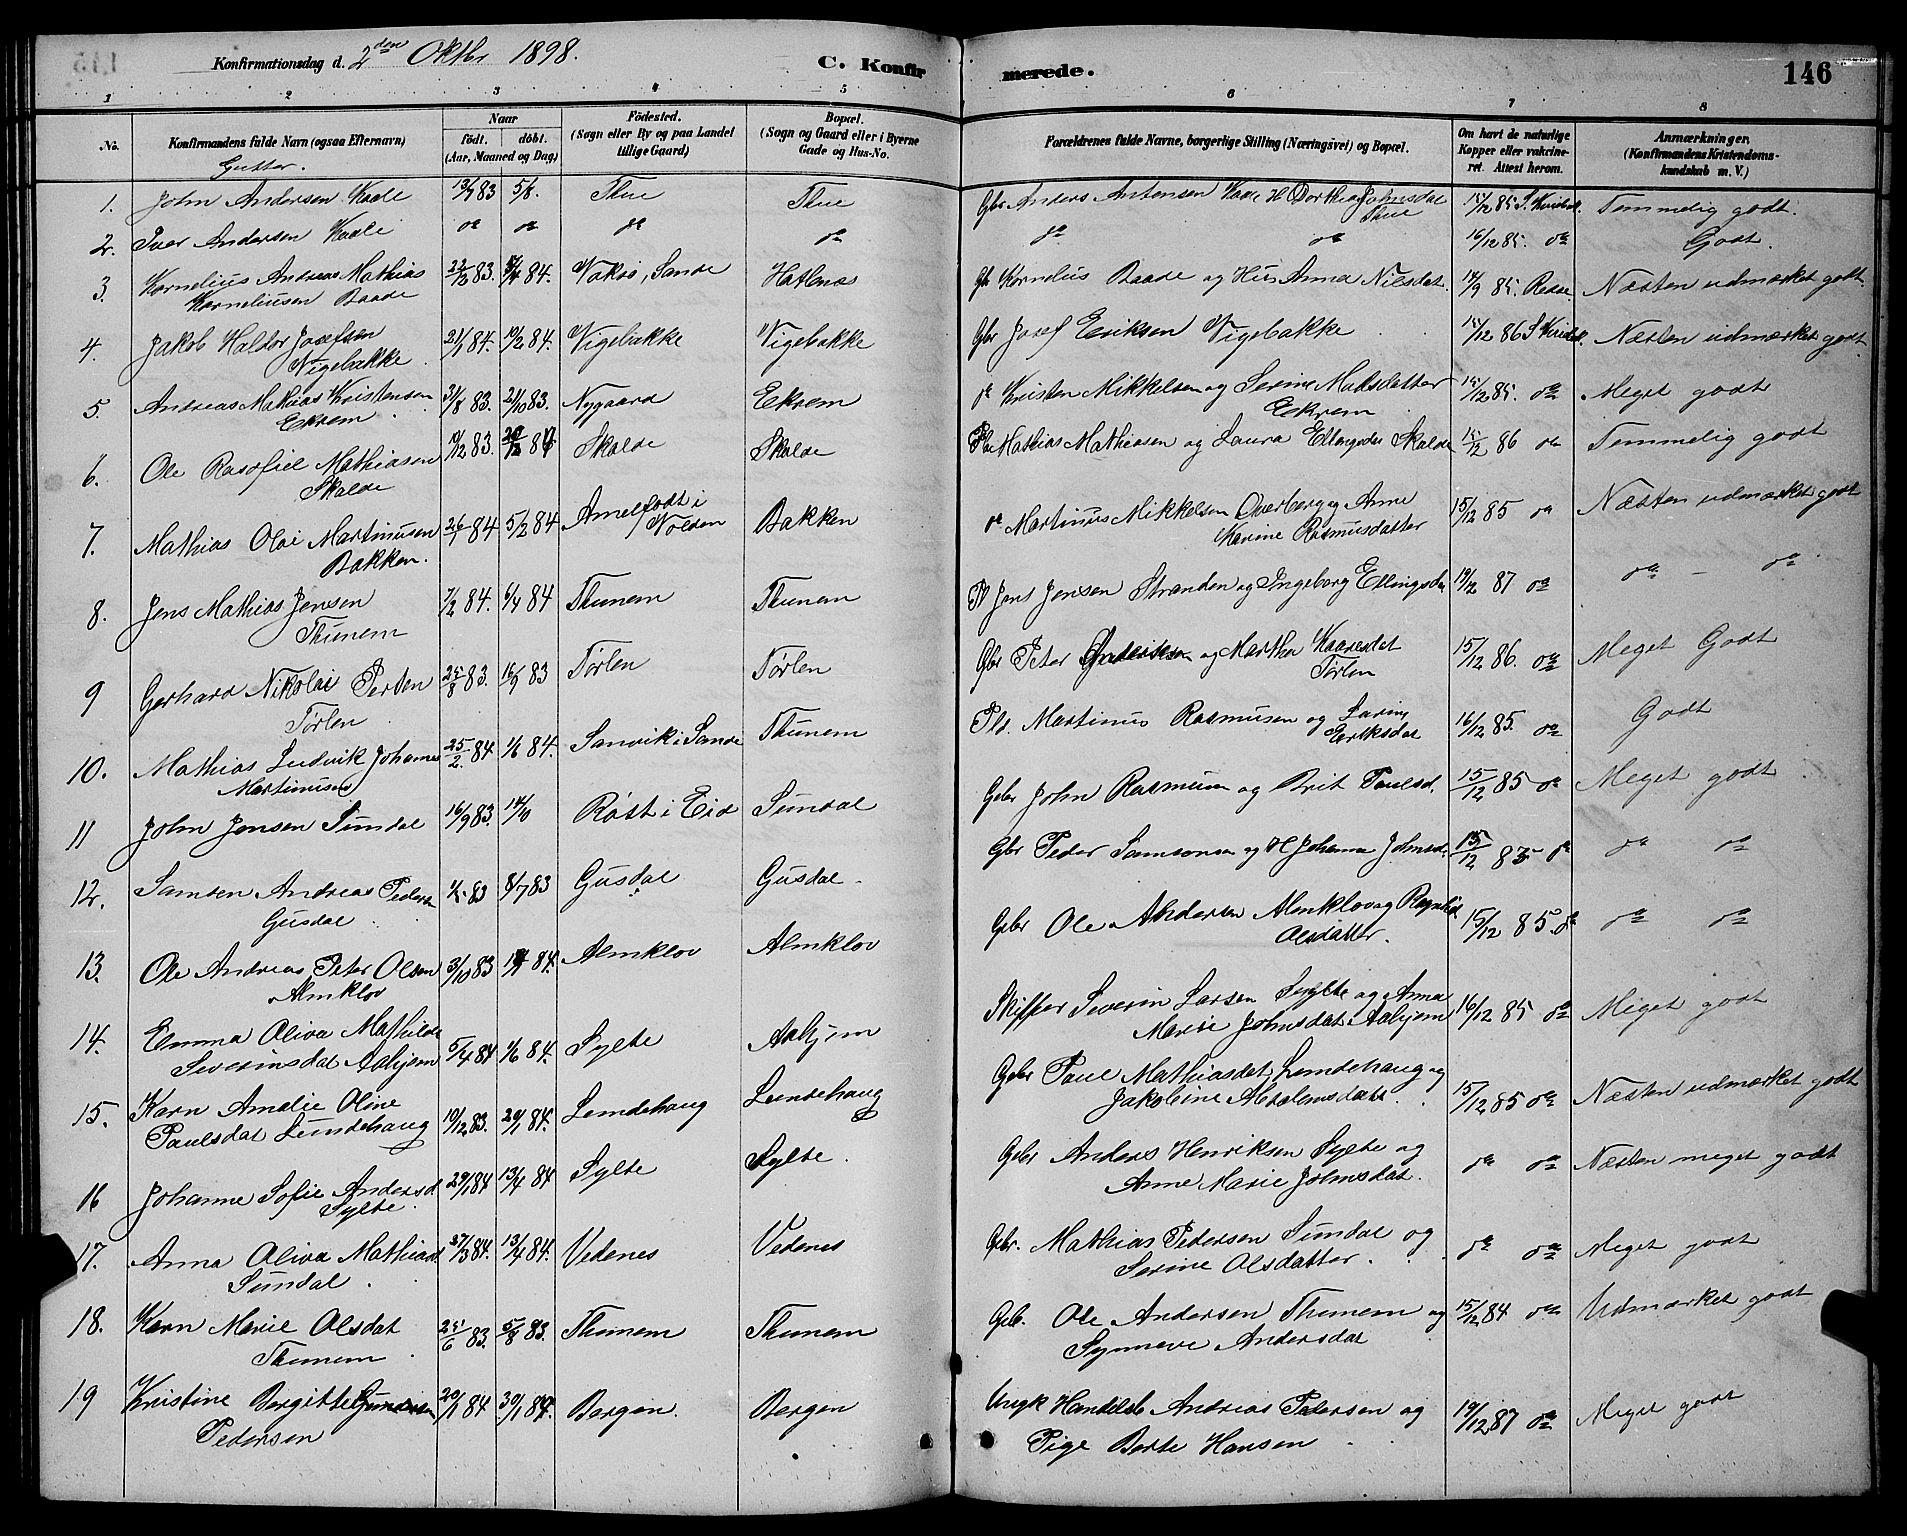 Konfirmationsdag d. 2den Oktbr 1898. C. Konfirmerede. 146
1 2 3 4 5 6 7 8
No. Konfirmandens fulde Navn (ogsaa Efternavn) Naar født. døbt. (Aar, Maaned og Dag) Fødested. (Sogn eller By og paa Landet tillige Gaard) Bopæl. (Sogn og Gaard eller i Byerne Gade og Hus-No. Forældrenes fulde Navne, borgerlige Stilling (Næringsvei) og Bopæl. Om havt de naturlige Kopper eller vakcineret. Attest herom. Anmærkninger. (Konfirmandens Kristendomskundskab m. V.)
Gutter.
1. John Andersen Kaale 13/7 83 5/8. Thue Thue Gbr Anders Antonsen Kaale H Dorthea Johnsdat Thue 15/12 85 Temmelig godt.
2. Iver Andersen Kaale do do do do do do 16/12 85. do Godt.
3. Kornelius Andreas Mathias Korneliusen Baade 22/12 83. 84. Voksø, Sande Hatlenes Gb Kornelius Baade og Hus Anna Nilsdat. 14/9 85. Næsten udmærket godt.
4. Jakob Haldor Josefsen Vigebakke 21/1 84. 10/2 84. Vigebakke Vigebakke Gbr Josef Eriksen Vigebakke 15/12 86 Næsten udmærket godt.
5 Andreas Mathias Kristensen Ekrem 31/8 83. 21/10 83. Nygaard Ekrem do Kristen Mikkelsen og Serine Madsdatter Ekrem 15/12 85. do Meget godt
6. Ole Rasofiel Mathiasen Skalde 10/12 83. Skalde Skalde Pl Mathias Mathiasen og Laura Ellingsdat Skalde 15/12 86 do Temmelig godt
7. Mathias Olai Martinusen Bakken. 26/1 84 5/2 84 Amelfodt i Volden Bakken do Martinus Mikkelsen Overberg og Anne Karine Rasmusdatter 15/12 85 do Næsten udmærket godt
8. Jens Mathias Jensen Thunem 7/2 84. 6/4 84 Thunem Thunem Pl Jens Jensen Stranden og Ingeborg Ellingsdat 19/12 87 do do - do
9 Gerhard Nikolai Perten Tørlen 25/8 83. 16/9 83 Tørlen Tørlen Gbr Peter og Martha Kaaresdat Tørlen 15/12 86. do Meget Godt
10. Mathias Ludvik Johannes Martinusen 25/2 84 1/6 84. Sanvik i Sande Thunem Pld. Martinus Rasmusen og Larine Eriksdat 16/12 85. do Godt
11 John Jensen Sundal 16/9 83. 14/10 Røst i Eid Sundal Gbr John Rasmusen og Brit Paulsd. 15/12 85 do Meget godt
12. Samson Andreas Pedersen Gusdal 83 8/7 83 Gusdal Gusdal Gbr Peder Samsonsen og H Johanna Johnsd. 15/12 85 do do do
13. Ole Andreas Peter Olsen Almklov 3/10 83 84. Almklov Almklov Gbr Ole Andersen Almklov og Ragnhild Olsdatter. 15/12 85. do do do
14. Emma Oliva Mathilde Severinsdat Aahjem 5/4 84 1/6 84. Sylte Aahjem Skipper Severin Larsen Sylte og Anna Marie Johnsdat Aahjem 16/12 85 do Meget godt
15. Karn Amalie Oline Paulsdat Lundehaug 19/12 83. 20/1 84. Lundehaug Lundehaug Gbr Paul Mathiasdat Lundehaug og Jakobine Absalonsdat. 15/12 85 do Næsten udmærket godt
16 Johanne Sofie Andersd Sylte. 29/1 84 13/4 84 Sylte Sylte. Gbr Anders Henriksen Sylte og Anne Marie Johnsdat. do do Næsten meget godt
17. Anna Oliva Mathiasd Sundal 27/3 84. 13/4 84. Vedenes Vedenes Gbr. Mathias Pedersen Sundal og Serine Olsdatter. do do Meget godt
18. Karn Marie Olsdat Thunem 25/6 83. 5/8 83. Thunem Thunem Gbr. Ole Andersen Thunem og Synneve Andersdat 15/12 84 do Udmærket godt
19 Kristine Bergitte Pedersen 20/1 84 30/1 84. Bergen. Bergen Ungk Handelsb Andreas Pedersen og Pige Berte Hansen 19/12 87 do Meget godt